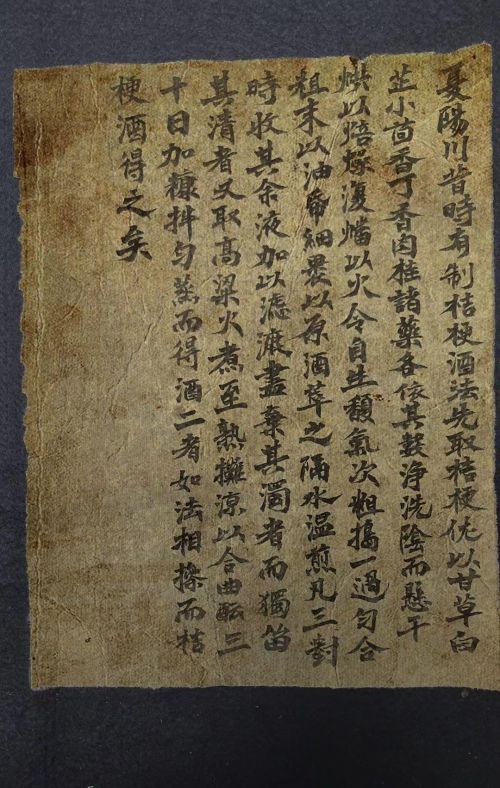 夏陽川昔時有制桔梗酒法先取桔梗伏以甘草白
芷小茴香丁香肉桂諸藥各依其數浄洗陰而懸干
烘以焙燥復燔以火令自生馥氣次粗搗一過匀合
粗末以油帋細裹以原酒萃之隔水温煎凡三對
時收其余液加以濾漉盡棄其濁者而獨留
其清者又取高梁火煮至熟攤凉以合曲酝三
十日加糠拌匀蒸而得酒二者如法相摻而桔
梗酒得之矣